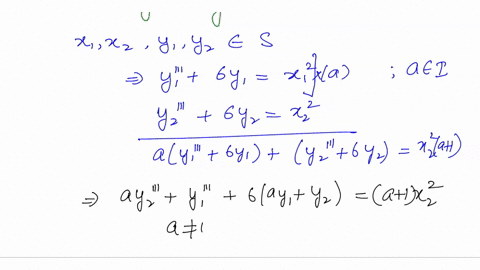 x₁, x₂, y₁, y₂ ∈ S
⇒ y₁''' + 6y₁ = x₁² x(a) ; a ∈ I
y₂''' + 6y₂ = x₂²
a(y₁''' + 6y₁) + (y₂''' + 6y₂) = x₂²(a+1)
⇒ ay₂''' + y₁''' + 6(ay₁ + y₂) = (a+1)x₂²
a ≠ 1